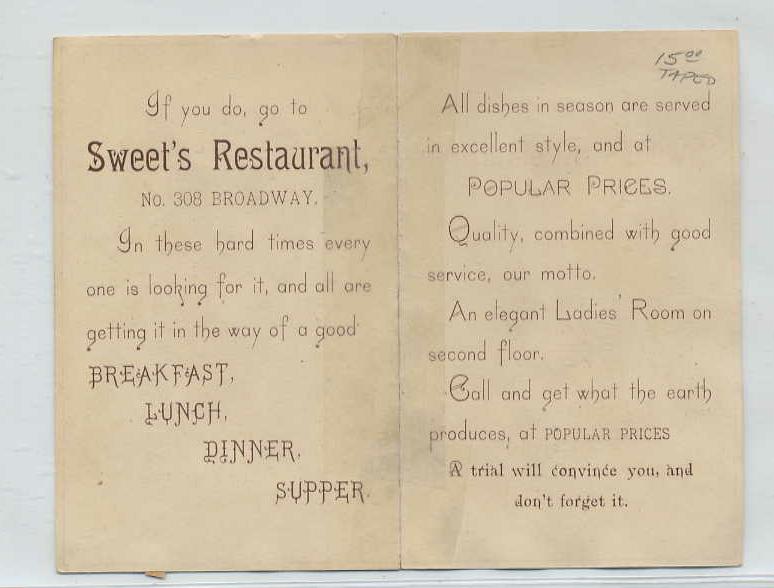 If you do, go to
Sweet's Restaurant,
No. 308 BROADWAY.
In these hard times every
one is looking for it, and all are
getting it in the way of a good
BREAKFAST,
LUNCH,
DINNER,
SUPPER.
15.00
TAPED
All dishes in season are served
in excellent style, and at
POPULAR PRICES.
Quality, combined with good
service, our motto.
An elegant Ladies' Room on
second floor.
Call and get what the earth
produces, at POPULAR PRICES
A trial will convince you, and
don't forget it.